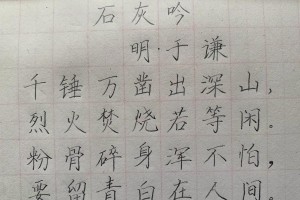 石灰吟
明·于谦
千锤万凿出深山,
烈火焚烧若等闲。
粉骨碎身浑不怕,
要留青白在人间。